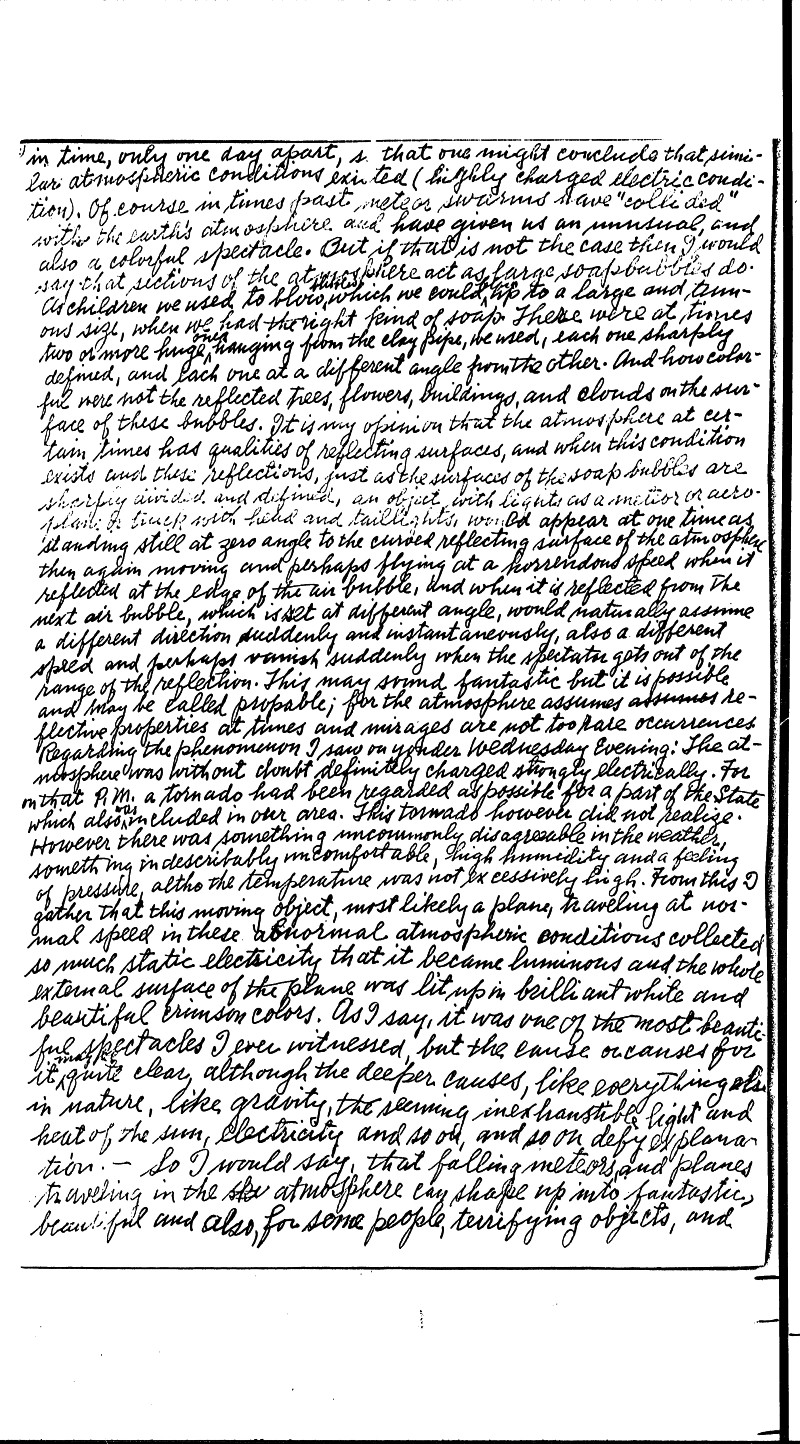 in time, only one day apart, s that one might conclude that simi-
lar atmospheric conditions exi ted (highly charged electric condi-
tion). Of course in times past meteor swarms have "collided"
with the earth's atmosphere and have given us an unusual, and
also a colorful spectacle. But if that is not the case then I would
say that sections of the atmosphere act as large soap bubbles do.
As children we used to blow, which we could, up to a large and trem-
ous size, when we had the right kind of soap. There were at times
two or more huge ones, hanging from the clay pipe, we used, each one sharply
defined, and each one at a different angle from the other. And how color-
ful were not the reflected trees, flowers, buildings, and clouds on the sur-
face of these bubbles. It is my opinion that the atmosphere at cer-
tain times has qualities of reflecting surfaces, and when this condition
exists and these reflections, just as the surfaces of the soap bubbles are
sharply divided and defined, an object with lights as a meteor or aero-
plane or truck with head and taillights, would appear at one time as
standing still at zero angle to the curved reflecting surface of the atmosphere
then again moving and perhaps flying at a horrendous speed when it
reflected at the edge of the air bubble, and when it is reflected from the
next air bubble, which is set at different angle, would naturally assume
a different direction suddenly and instantaneously, also a different
speed and perhaps vanish suddenly when the spectator gets out of the
range of the reflection. This may sound fantastic but it is possible
and may be called propable; for the atmosphere assumes assumes re-
flective properties at times and mirages are not too rare occurrences
Regarding the phenomenon I saw on yonder Wednesday Evening: The at-
mosphere was without doubt definitely charged strongly electrically. For
on that P.M. a tornado had been regarded as possible for a part of the State
which also was included in our area. This tornado however did not realize.
However there was something uncommonly disagreeable in the weather,
something indescribably uncomfortable, high humidity and a feeling
of pressure, altho the temperature was not excessively high. From this I
gather that this moving object, most likely a plane, traveling at nor-
mal speed in these abnormal atmospheric conditions collected
so much static electricity that it became luminous and the whole
external surface of the plane was lit up in brilliant white and
beautiful crimson colors. As I say, it was one of the most beauti-
ful spectacles I ever witnessed, but the cause or causes for
it, may be quite clear, although the deeper causes, like everything else
in nature, like gravity, the seeming inexhaustible light and
heat of the sun, electricity and so on, and so on defy explana-
tion. — So I would say, that falling meteors, and planes
traveling in the sky atmosphere can shape up into fantastic,
beautiful and also, for some people, terrifying objects, and